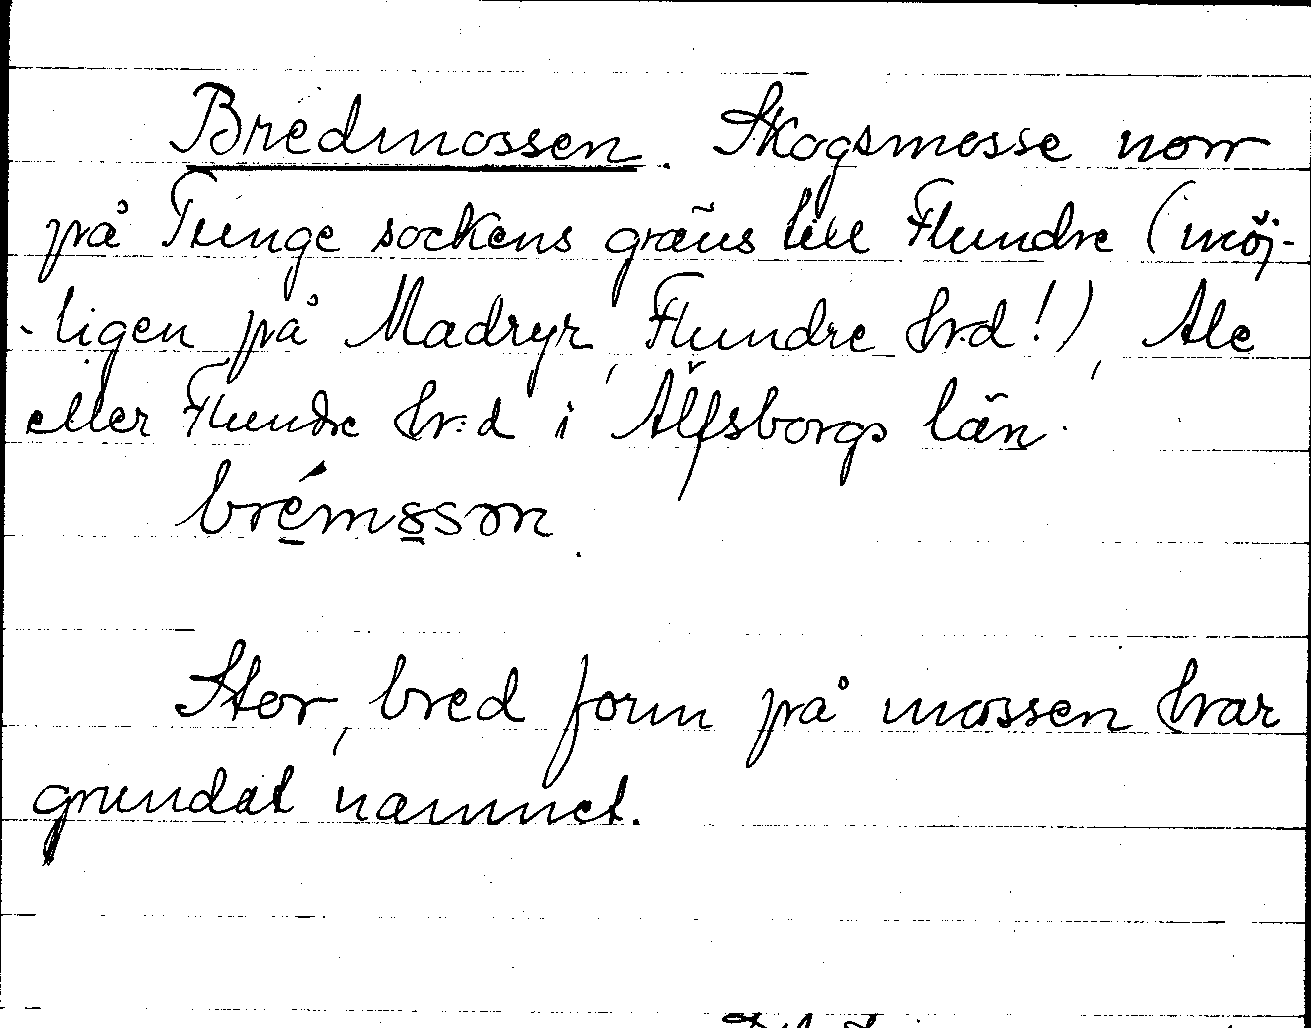 Bredmossen. Skogsmosse norr
på Tunge sockens gräns till Flundre (möj-
-ligen på Madryr, Flundre hrd!), Ale
eller Flundre hrd i Älfsborgs län.
brémsson
Stor, bred form på mossen har
grundat namnet.